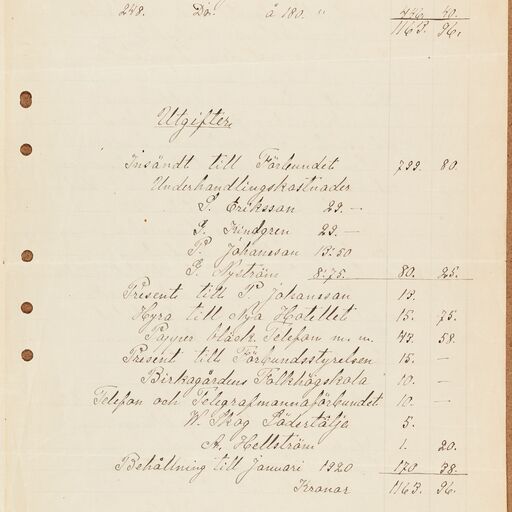 248. Do. á 180. " 446 40.
1163. 96.
Utgifter.
Insändt till Förbundet 799. 80.
Underhandlingskostnader
S. Eriksson 29. —
J. Lindgren 29. —
P. Johansson 13.50
J. Nyström 8.75. 80. 25.
Present till P. Johansson 13.
Hyra till Nya Hotellet 15. 75.
Papper bläck Telefon m. m. 43. 58.
Present till Förbundsstyrelsen 15. —
Birkagårdens Folkhögskola 10. —
Telefon och Telegrafmannaförbundet 10. —
W. Skog Södertälje 5.
A. Hellström 1. 20.
Behållning till Januari 1920 170 38.
Kronor 1163. 96.